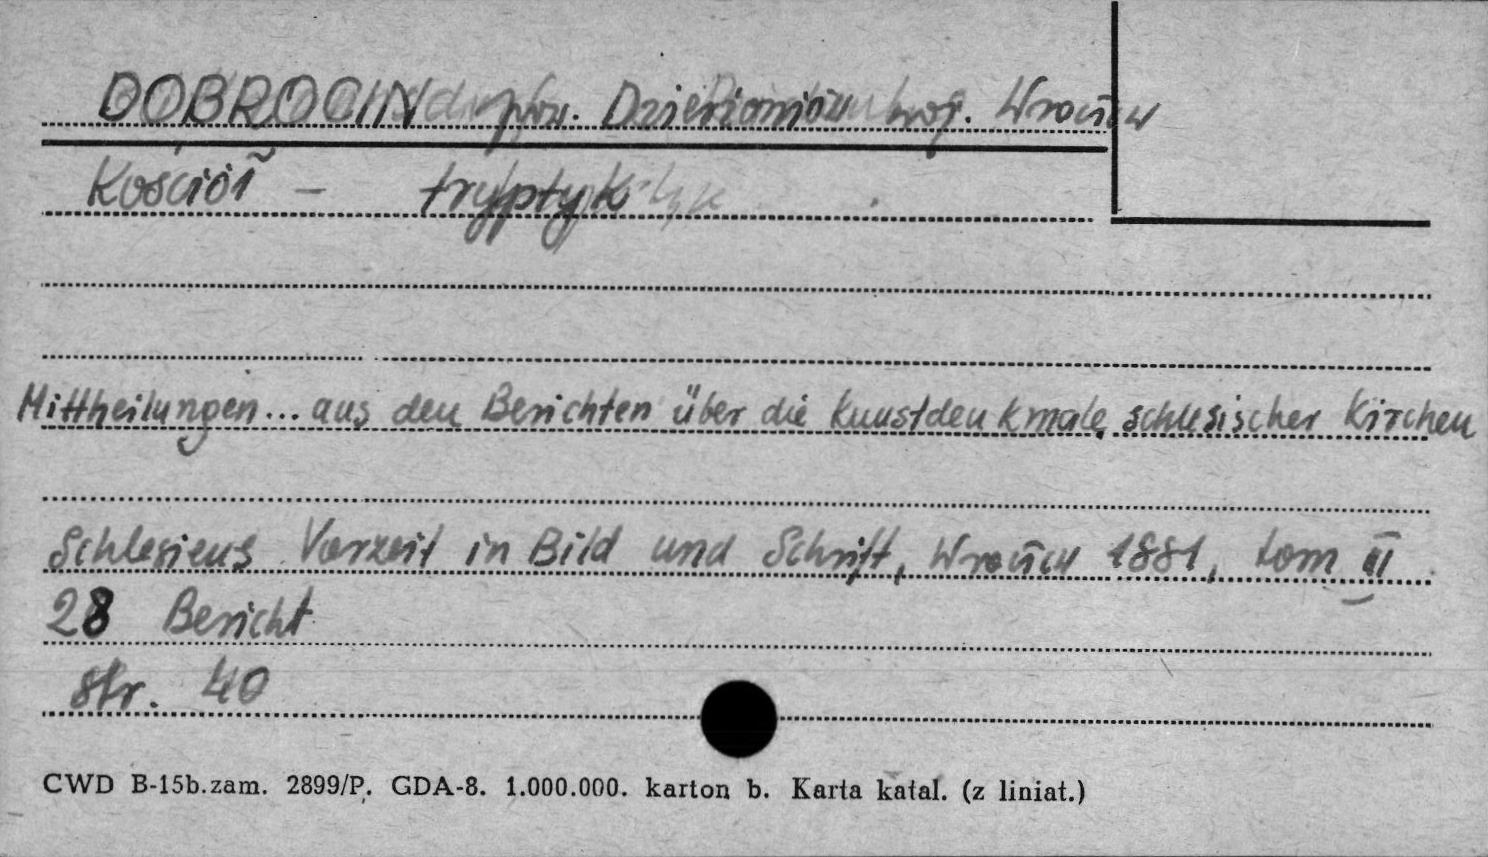 DOBROCIN pow. Dzierżoniów woj. Wrocław
Kościół - tryptyk
Mittheilungen... aus den Berichten über die Kunstdenkmale schlesischer Kirchen
Schlesiens Vorzeit in Bild und Schrift, Wrocław 1881, tom III
28 Bericht
str. 40
CWD B-15b.zam. 2899/P. GDA-8. 1.000.000. karton b. Karta katal. (z liniat.)